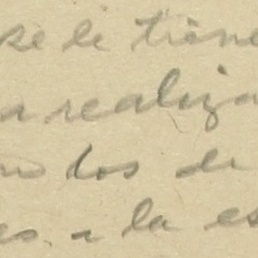 se le tiene
a realiza
los de
es. a la es